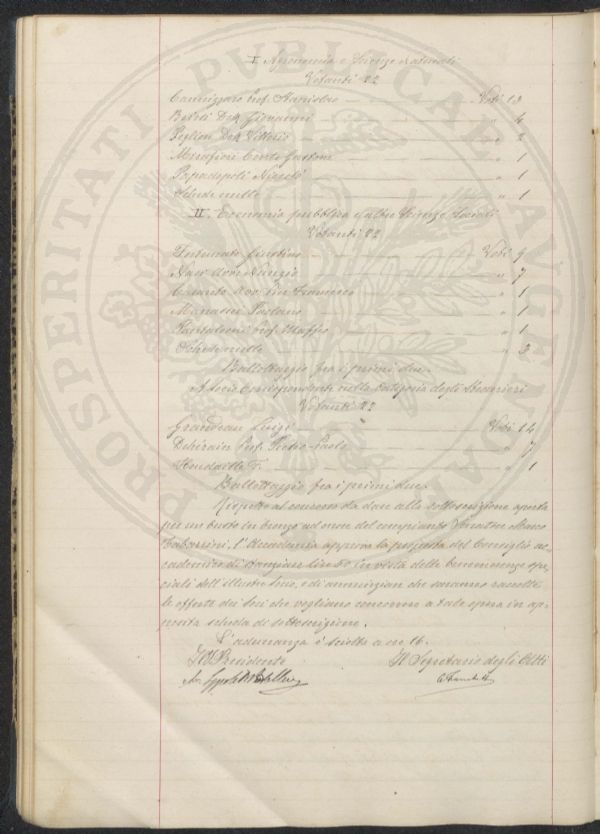 PROSPERITATI PUBLICAE AUGENDAE
I. Agronomia e Scienze Naturali
Votanti 22
Cannizzaro Prof. Stanislao Voti 13
Dott. Giovanni " 4
Peglion Dott. Vittorio " 2
Mirafiori Conte Gastone " 1
Papadopoli Nicolò " 1
Schede nulle " 1
II. Economia pubblica e altre Scienze Sociali
Votanti 22
Fortunato Giustino Voti 9
Nasi Avv. Nunzio " 7
Avv. Francesco " 1
" 1
Pantaleoni Prof. Maffeo " 1
Schede nulle " 3
Ballottaggio fra i primi due.
A Socio Corrispondente nella Categoria degli Stranieri
Votanti 22
Grandeau Luigi Voti 14
Dehérain Prof. Pietro-Paolo " 7
F. " 1
Ballottaggio fra i primi due.
Rispetto al concorso da dare alla sottoscrizione aperta
per un busto in bronzo ad onore del compianto Senatore Marco
Tabarrini, l'Accademia approva la proposta del Consiglio ac-
cademico di stanziare Lire 50 in vista delle benemerenze spe-
ciali dell'illustre Socio, e di annunziare che saranno raccolte
le offerte dei Soci che vogliano concorrere a tale opera in ap-
posita scheda di sottoscrizione.
L'adunanza è sciolta a ore 16.
Il V. Presidente Il Segretario degli Atti